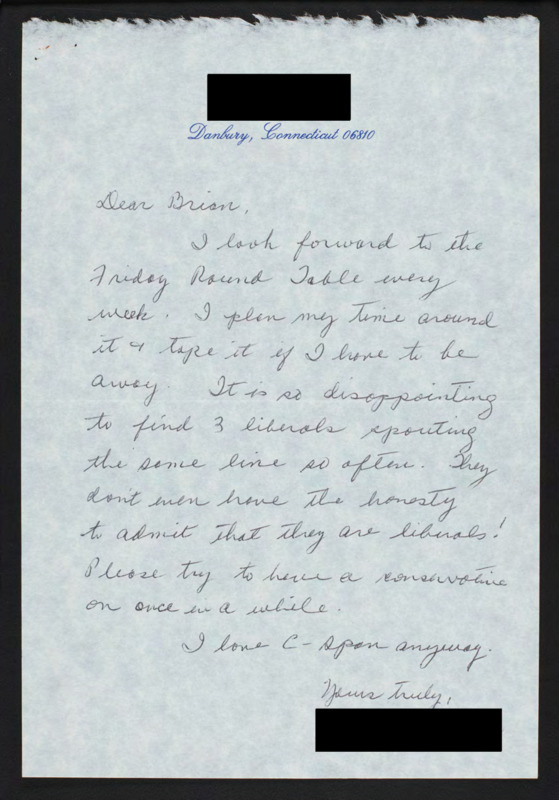 Danbury, Connecticut 06810
Dear Brian,
I look forward to the
Friday Round Table every
week. I plan my time around
it & tape it if I have to be
away. It is so disappointing
to find 3 liberals spouting
the same line so often. They
don't even have the honesty
to admit that they are liberals!
Please try to have a conservative
on once in a while.
I love C-Span anyway.
Yours truly,